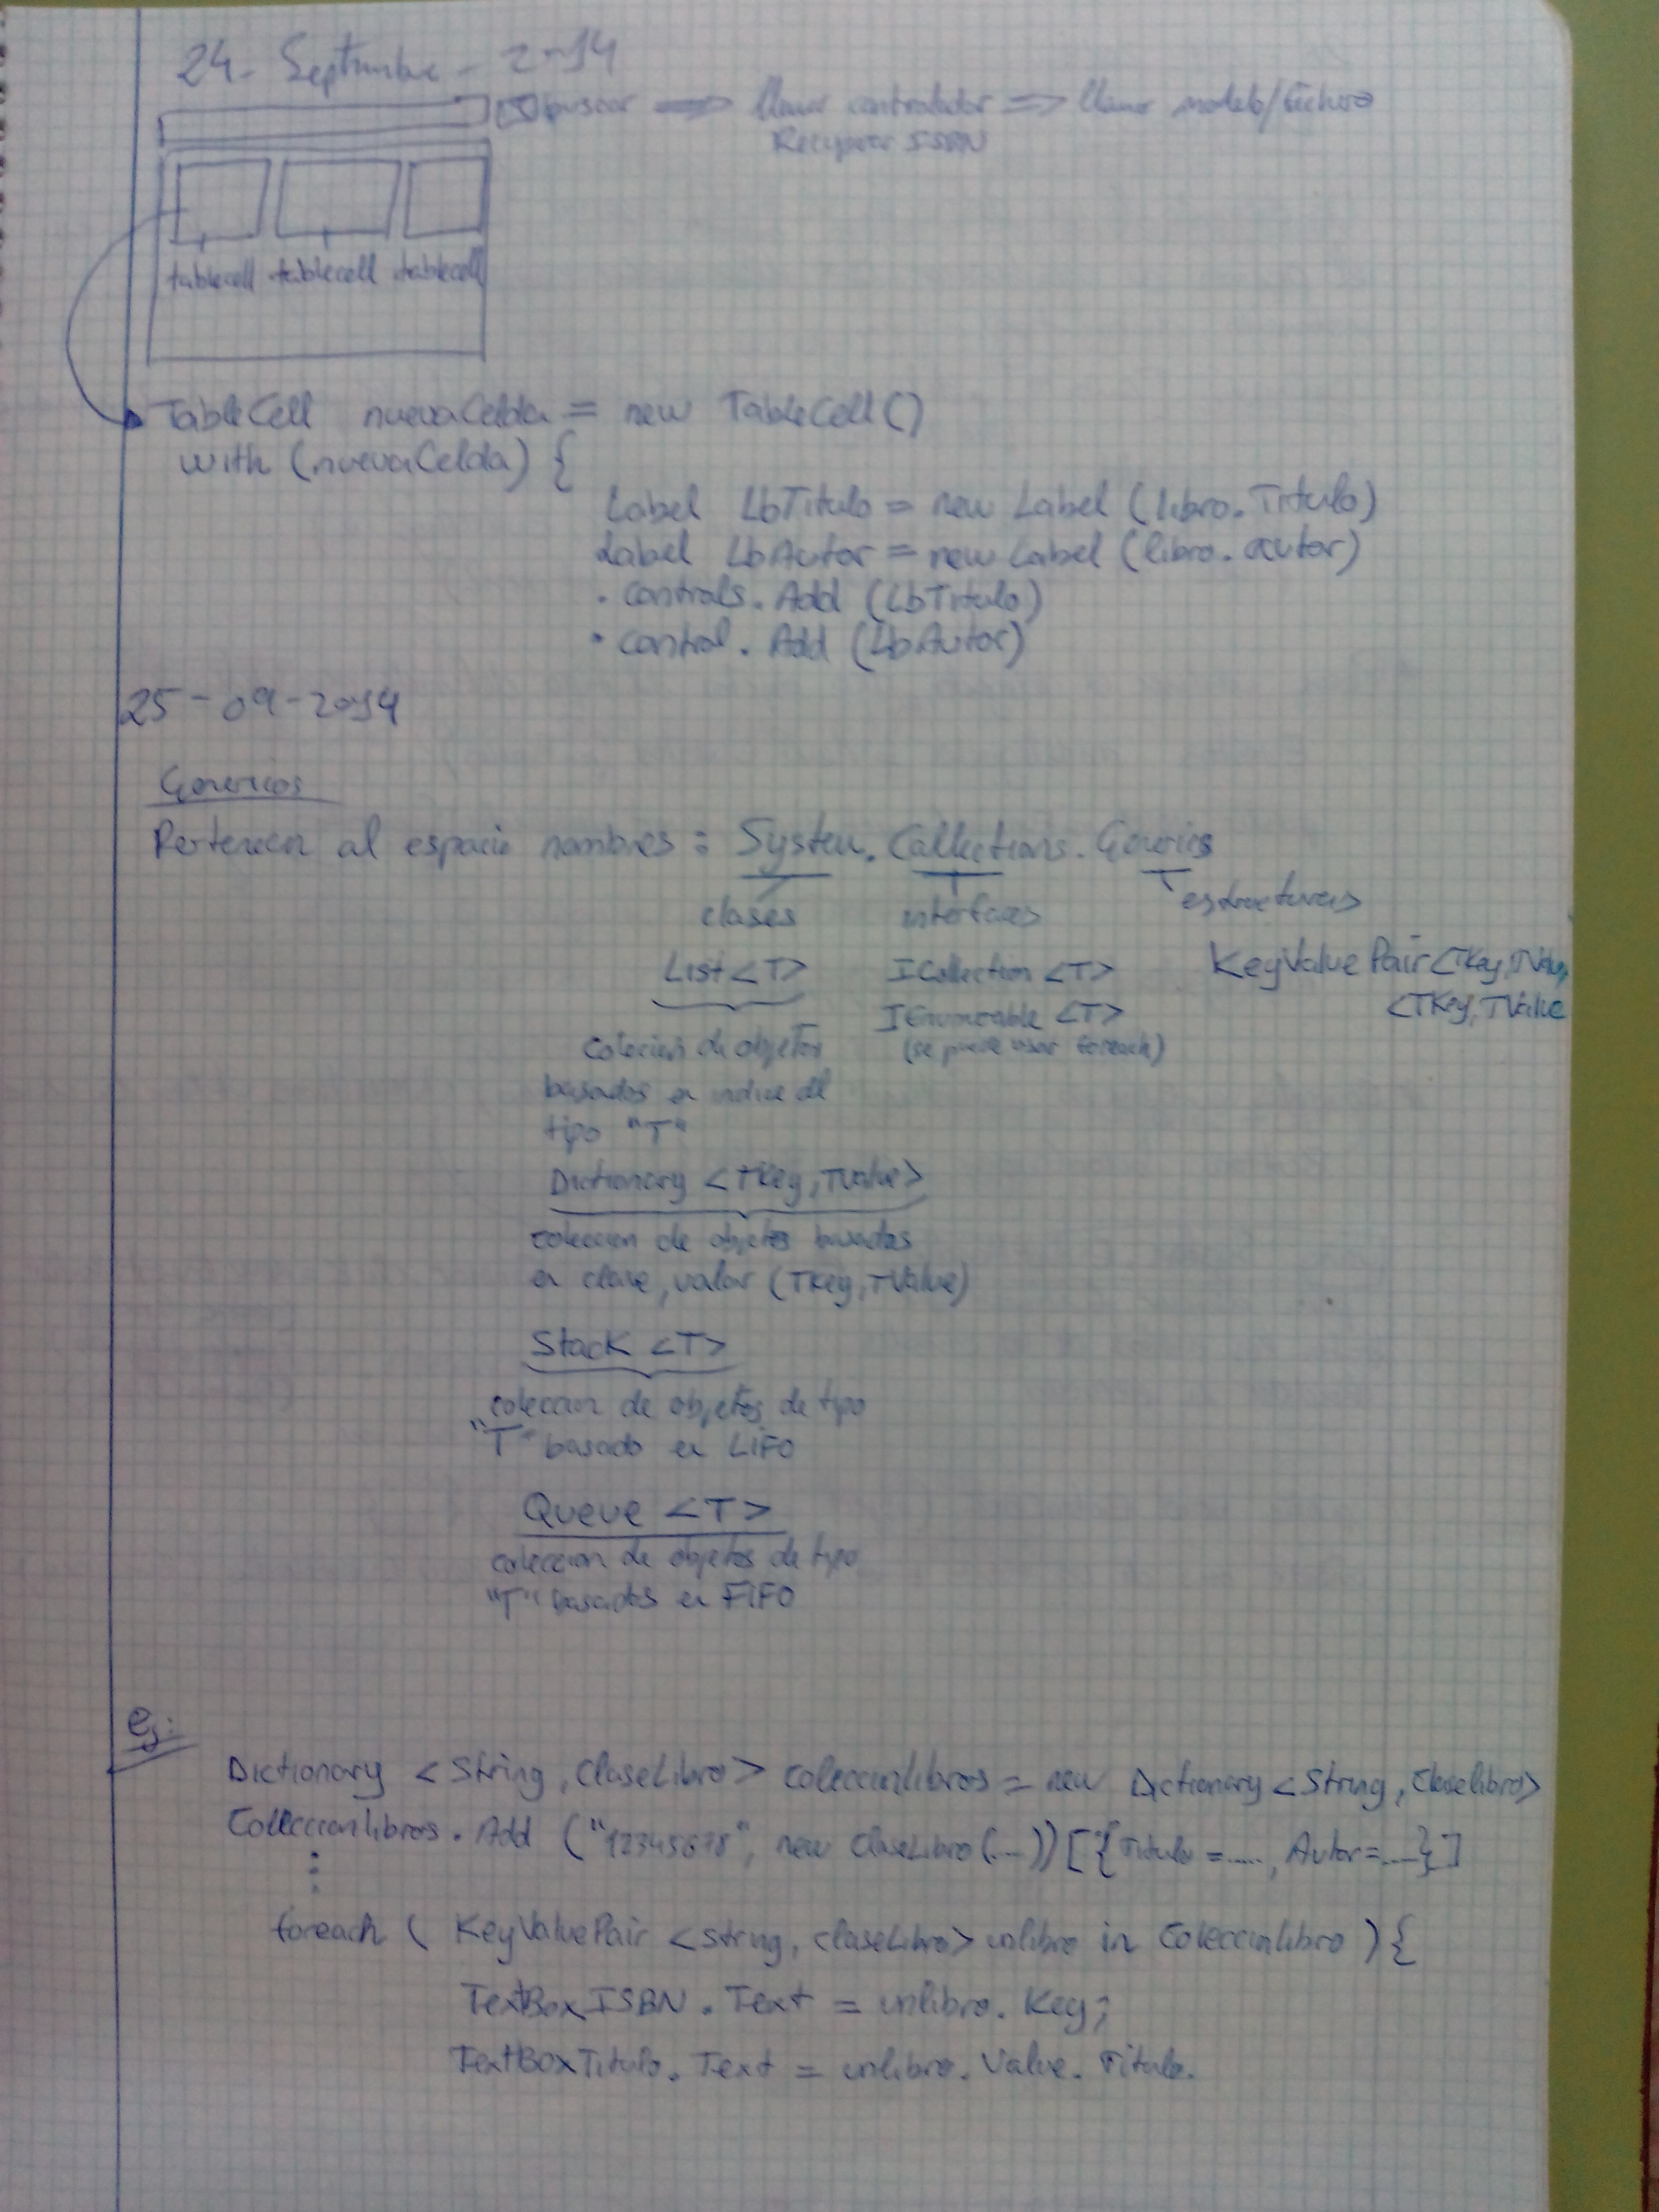 24 - Septiembre - 2014
buscar => llamar controlador => llamar modelo/fichero
Recuperar ISBN
tablecell tablecell tablecell
TableCell nuevaCelda = new TableCell()
with (nuevaCelda) {
Label LbTitulo = new Label (libro.Titulo)
Label LbAutor = new Label (libro.autor)
. controls. Add (LbTitulo)
. control. Add (LbAutor)
25-09-2014
Genericos
Pertenecen al espacio nombres : System. Collections. Generics
clases interfaces estructuras
List <T> ICollection <T> KeyValuePair <TKey, TValue
IEnumerable <T> <TKey, TValue
colecion de objetos (se puede usar foreach)
basados en indice del
tipo "T"
Dictionary <TKey, TValue>
coleccion de objetos basados
en clave, valor (TKey, TValue)
Stack <T>
coleccion de objetos de tipo
"T" basado en LIFO
Queue <T>
coleccion de objetos de tipo
"T" basados en FIFO
ej:
Dictionary <String, ClaseLibro> coleccionlibros = new Dictionary <String, Claselibro>
Coleccionlibros. Add ("12345678", new ClaseLibro(...)) [{Titulo = ....., Autor = ....}]
⋮
foreach ( KeyValuePair <string, claseLibro> unlibro in Coleccionlibro ) {
TextBoxISBN. Text = unlibro. Key;
TextBoxTitulo. Text = unlibro. Value. Titulo.